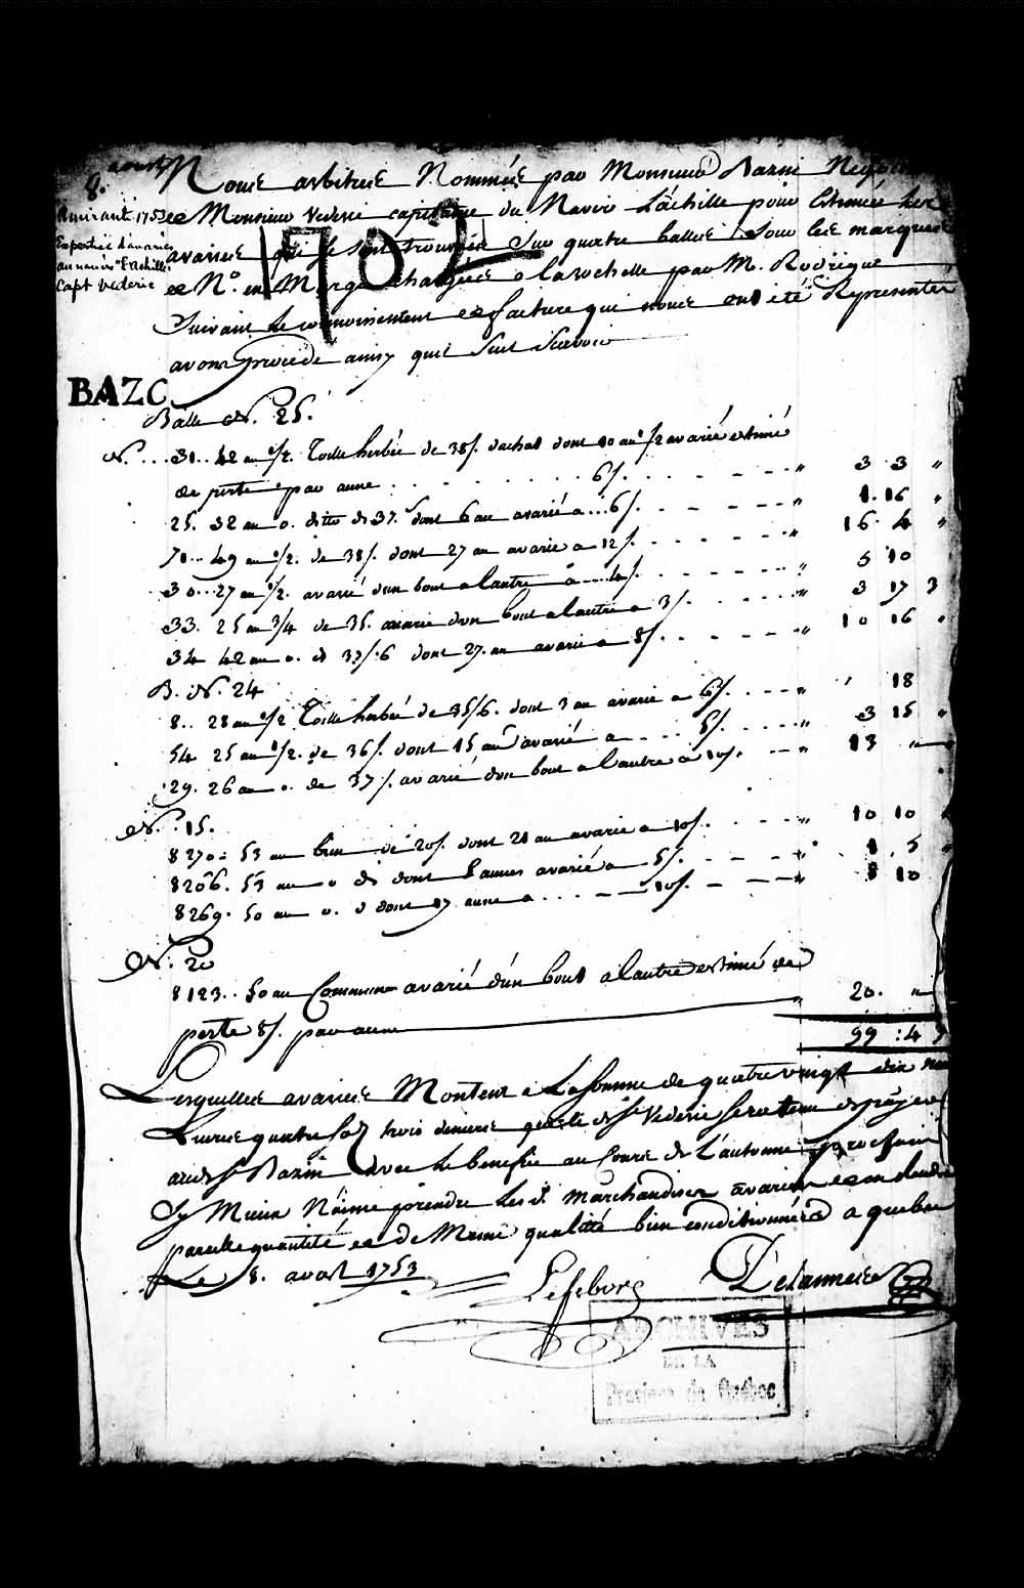 8. aoust
Amirauté 1753
Expertise d'avaries
au navire "l'Achille"
Capt Vederie
1702
Nous arbitres Nommées par Monsieur Bazin Nego
et Monsieur Vederie capitaine du Navire L'achille pour Estimée les
avaries qui se sont trouvées Sur quatre balles Sous les marques
et No. en Marge chargées a la rochelle par M. Rodrigue
Suivant le connoissement et facture qui nous ont été Representer
avons procédé ainsy quil Suit Scavoir
BAZC
Balle N. 25.
N. ... 31.. 42 au 1/2. Toille herbée de 38/. dachat dont 10 au 1/2 avarié estimé
de perte par aune . . . . . . . . 6/. . . . . - - " 3 3 "
25. 32 au 0. ditto de 37. dont 6 au avarié a ... 6/. . . . - - - " 1. 16 "
71... 49 au 1/2. de 38/. dont 27 au avarié a 12/. . . . - - - " 16. 4 "
30... 27 au 1/2. avarié dun bout a lautre a .... 4/. . . . - - - " 5 10
33. 25 au 3/4 de 35. avarié dun bout a lautre a 3/. . . . - - " 3 17 3
34 42 au 0. d 37/.6 dont 27. au avarié a 8/. . . . - - " 10 16 "
B. N. 24
8.. 28 au 1/2 Toille herbée de 35/6. dont 3 au avarié a 6/. . . - - " " 18
54 25 au 1/2. de 36/. dont 15 au avarié a . . . . 5/. . . - - " 3 15 "
29. 26 au 0. de 37/. avarié dun bout a lautre a 10/. . - - " 13 "
N. 15.
8270. 53 au brin de 20/. dont 21 au avarié a 10/. . . . - - " 10 10
8206. 53 au 0 d dont 5 aunes avarié a 5/. - - - " 1. 5 "
8269. 50 au 0. d dont 17 aune a . . . - - 10/. - - " 8 10
N. 20
8123.. 50 au Commun avarié d'un bout a lautre estimé de
perte 8/. par aune " 20. "
99 : 4 3
Lesquelles avaries Montent a La Somme de quatre vingt dix neuf
Livres quatre sols trois deniers que le dit Sr Vederie sera tenu de payer
audt Sr Bazin avec le benefice au Cours de L'automne prochain
Sy Mieux N'aime prendre Les d. Marchandises avariées et en Rendre
pareille quantité et de Meme qualité bien conditionnées a quebec
Le 8. aoust 1753
Lefebvre Delannes
ARCHIVES
DE LA
Province de Québec